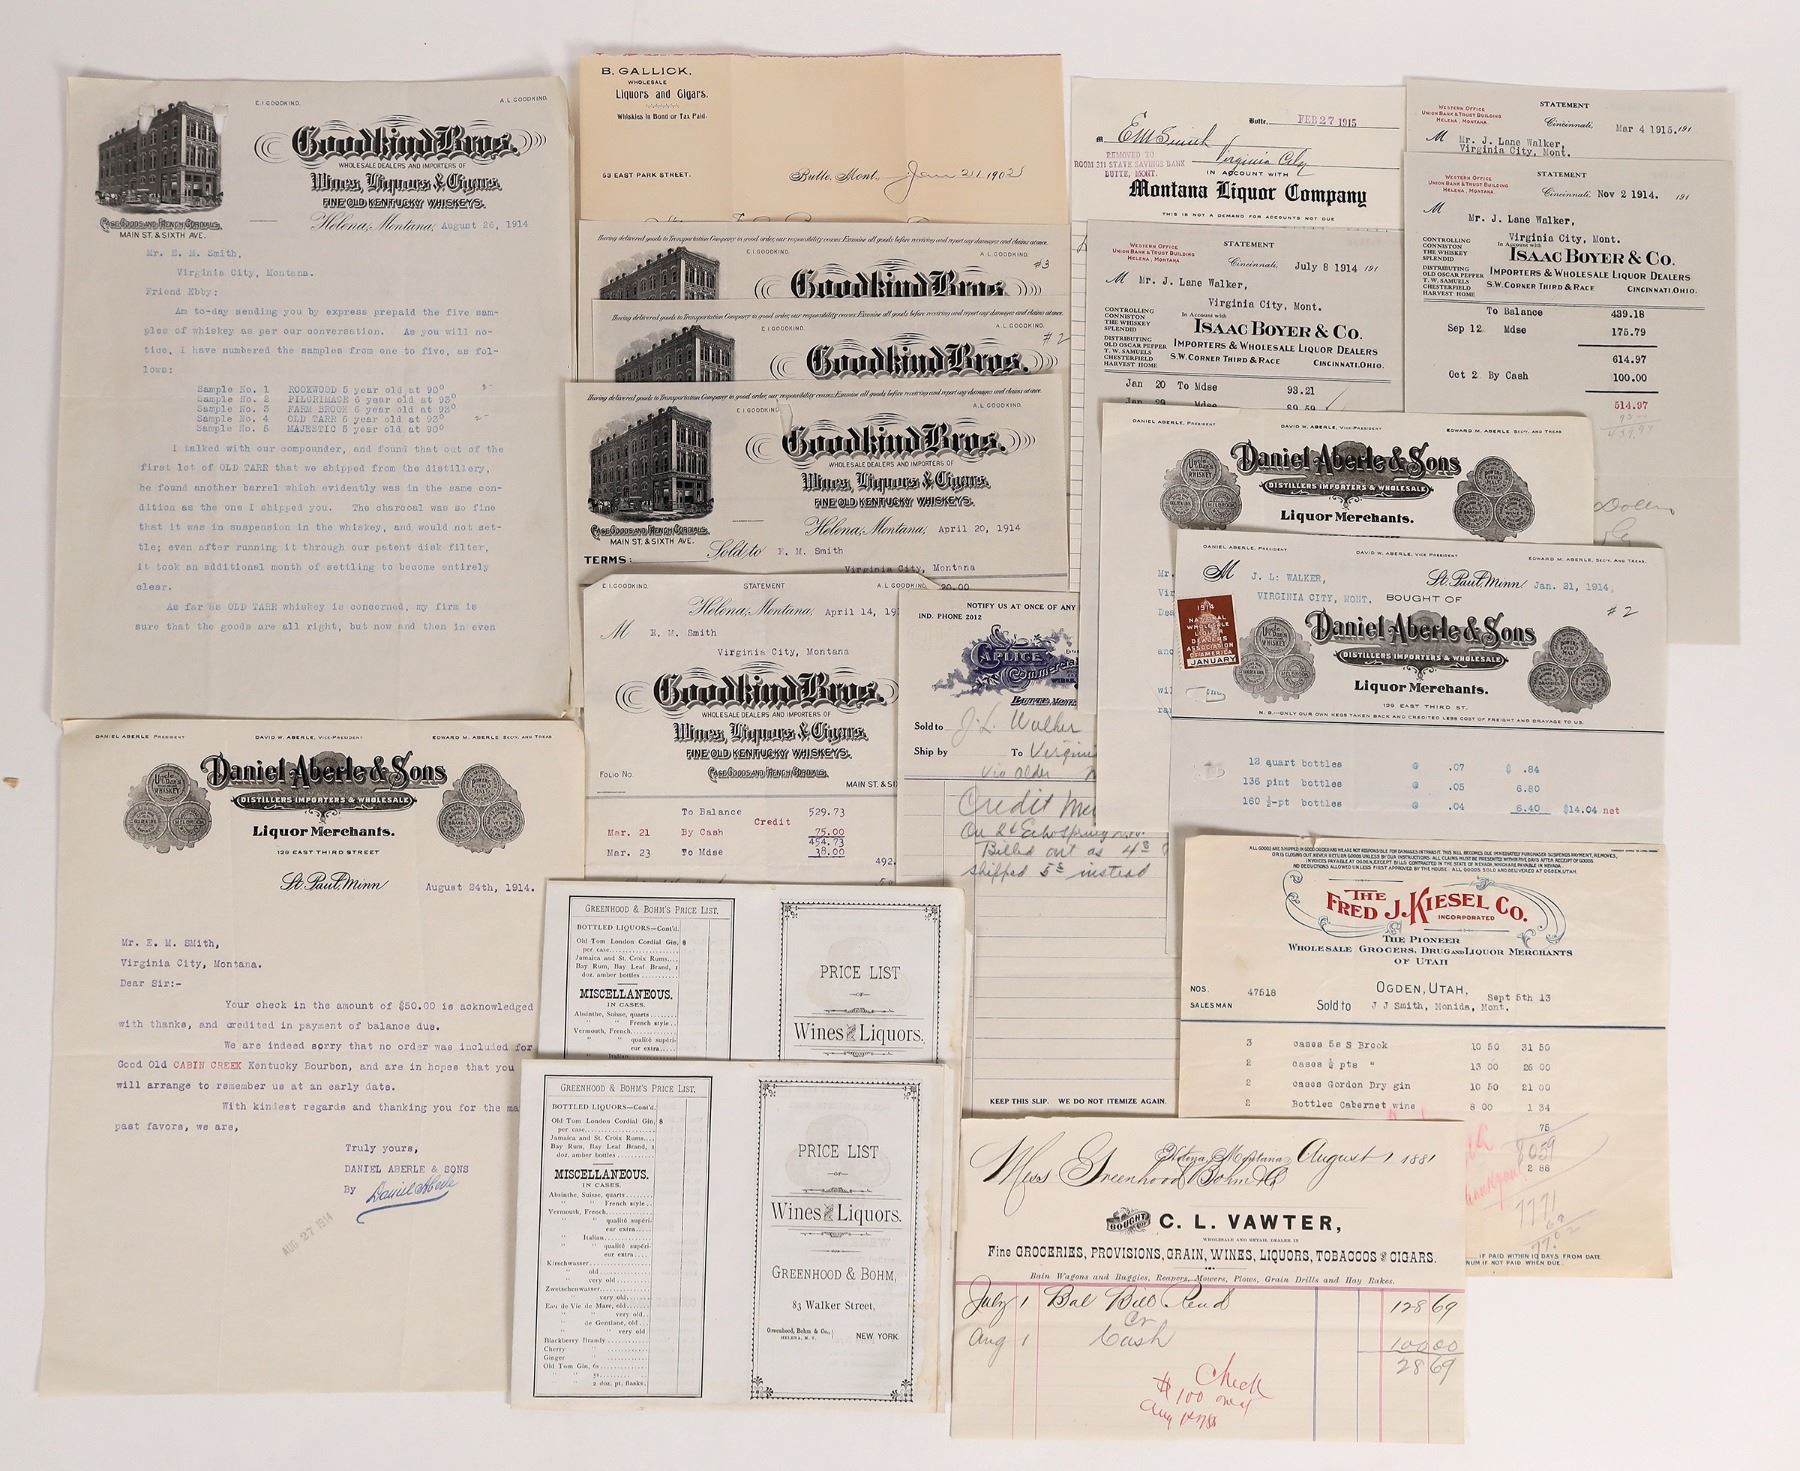 E. I. GOODKIND.
A. L. GOODKIND.
Goodkind Bros.
WHOLESALE DEALERS AND IMPORTERS OF
Wines, Liquors & Cigars.
FINE OLD KENTUCKY WHISKEYS.
CASE GOODS AND FRENCH CORDIALS.
MAIN ST. & SIXTH AVE.
Helena, Montana, August 26, 1914
Mr. E. M. Smith,
Virginia City, Montana.
Friend Ebby:
Am to-day sending you by express prepaid the five sam-
ples of whiskey as per our conversation. As you will no-
tice, I have numbered the samples from one to five, as fol-
lows:
Sample No. 1 ROOKWOOD 5 year old at 90°
Sample No. 2 PILGRIMAGE 6 year old at 93°
Sample No. 3 FARM BROOK 6 year old at 93°
Sample No. 4 OLD TARR 6 year old at 93°
Sample No. 5 MAJESTIC 5 year old at 90°
I talked with our compounder, and found that out of the
first lot of OLD TARR that we shipped from the distillery,
he found another barrel which evidently was in the same con-
dition as the one I shipped you. The charcoal was so fine
that it was in suspension in the whiskey, and would not set-
tle; even after running it through our patent disk filter,
it took an additional month of settling to become entirely
clear.
As far as OLD TARR whiskey is concerned, my firm is
sure that the goods are all right, but now and then in even
B. GALLICK,
WHOLESALE
Liquors and Cigars.
Whiskies in Bond or Tax Paid.
53 EAST PARK STREET.
Butte, Mont., Jan 21 1902
Having delivered goods to Transportation Company in good order, our responsibility ceases. Examine all goods before receiving and report any damages and claims at once.
E. I. GOODKIND.
A. L. GOODKIND.
#3
Goodkind Bros.
Having delivered goods to Transportation Company in good order, our responsibility ceases. Examine all goods before receiving and report any damages and claims at once.
E. I. GOODKIND.
A. L. GOODKIND.
#2
Goodkind Bros.
Having delivered goods to Transportation Company in good order, our responsibility ceases. Examine all goods before receiving and report any damages and claims at once.
E. I. GOODKIND
A. L. GOODKIND.
Goodkind Bros.
WHOLESALE DEALERS AND IMPORTERS OF
Wines, Liquors & Cigars.
FINE OLD KENTUCKY WHISKEYS.
CASE GOODS AND FRENCH CORDIALS.
MAIN ST. & SIXTH AVE.
Helena, Montana, April 20, 1914
TERMS:
Sold to E. M. Smith
Virginia City, Montana
20.00
E. I. GOODKIND.
STATEMENT
A. L. GOODKIND
Helena, Montana, April 14, 19
M E. M. Smith
Virginia City, Montana
Goodkind Bros.
WHOLESALE DEALERS AND IMPORTERS OF
Wines, Liquors & Cigars.
FINE OLD KENTUCKY WHISKEYS.
FOLIO NO.
CASE GOODS AND FRENCH CORDIALS.
MAIN ST. & SI
To Balance 529.73
Credit
Mar. 21 By Cash 75.00
454.73
Mar. 23 To Mdse 38.00
492.
Butte, FEB 27 1915
M E M Smith
Virginia City
REMOVED TO
ROOM 311 STATE SAVINGS BANK
BUTTE, MONT.
IN ACCOUNT WITH
Montana Liquor Company
THIS IS NOT A DEMAND FOR ACCOUNTS NOT DUE
WESTERN OFFICE
UNION BANK & TRUST BUILDING
HELENA, MONTANA.
STATEMENT
Cincinnati, Mar 4 1915. 191
M Mr. J. Lane Walker,
Virginia City, Mont.
WESTERN OFFICE
UNION BANK & TRUST BUILDING
HELENA, MONTANA.
STATEMENT
Cincinnati, Nov 2 1914. 191
M Mr. J. Lane Walker,
Virginia City, Mont.
In Account with
CONTROLLING
CONNISTON
THE WHISKEY
SPLENDID
DISTRIBUTING
OLD OSCAR PEPPER
T. W. SAMUELS
CHESTERFIELD
HARVEST HOME
ISAAC BOYER & CO.
IMPORTERS & WHOLESALE LIQUOR DEALERS
S.W. CORNER THIRD & RACE
CINCINNATI, OHIO.
To Balance 439.18
Sep 12 Mdse 175.79
614.97
Oct 2 By Cash 100.00
514.97
WESTERN OFFICE
UNION BANK & TRUST BUILDING
HELENA, MONTANA
STATEMENT
Cincinnati, July 8 1914 191
M Mr. J. Lane Walker,
Virginia City, Mont.
In Account with
CONTROLLING
CONNISTON
THE WHISKEY
SPLENDID
DISTRIBUTING
OLD OSCAR PEPPER
T. W. SAMUELS
CHESTERFIELD
HARVEST HOME
ISAAC BOYER & CO.
IMPORTERS & WHOLESALE LIQUOR DEALERS
S.W. CORNER THIRD & RACE
CINCINNATI, OHIO.
Jan 20 To Mdse 93.21
Jan 29 89.59
DANIEL ABERLE, PRESIDENT
DAVID W. ABERLE, VICE-PRESIDENT
EDWARD M. ABERLE SECY. AND TREAS
Daniel Aberle & Sons
DISTILLERS IMPORTERS & WHOLESALE
Liquor Merchants.
DANIEL ABERLE, PRESIDENT
DAVID W. ABERLE, VICE PRESIDENT
EDWARD M. ABERLE, SECY. AND TREAS.
M J. L. WALKER,
VIRGINIA CITY, MONT.
St. Paul, Minn Jan. 21, 1914,
BOUGHT OF
#2
1914
NATIONAL
WHOLESALE
LIQUOR
DEALERS
ASSOCIATION
OF AMERICA
JANUARY
Daniel Aberle & Sons
DISTILLERS IMPORTERS & WHOLESALE
Liquor Merchants.
129 EAST THIRD ST.
N. B.—ONLY OUR OWN KEGS TAKEN BACK AND CREDITED LESS COST OF FREIGHT AND DRAYAGE TO US.
12 quart bottles @ .07 $ .84
136 pint bottles @ .05 6.80
160 ½-pt bottles @ .04 6.40 $14.04 net
NOTIFY US AT ONCE OF ANY
IND. PHONE 2012
CAPLICE
Commercia
BUTTE, MONT
Sold to J. L. Walker
Ship by To Virgini
Via Alder
Credit Me
On 2 Echo Spring
Billed out as 4
shipped 5 instead
KEEP THIS SLIP. WE DO NOT ITEMIZE AGAIN.
DANIEL ABERLE PRESIDENT
DAVID W. ABERLE, VICE-PRESIDENT
EDWARD M. ABERLE SECY. AND TREAS
Daniel Aberle & Sons
DISTILLERS IMPORTERS & WHOLESALE
Liquor Merchants.
129 EAST THIRD STREET
St. Paul, Minn August 24th, 1914.
Mr. E. M. SMith,
Virginia City, Montana.
Dear Sir:-
Your check in the amount of $50.00 is acknowledged
with thanks, and credited in payment of balance due.
We are indeed sorry that no order was included for
Good Old CABIN CREEK Kentucky Bourbon, and are in hopes that you
will arrange to remember us at an early date.
With kindest regards and thanking you for the ma
past favors, we are,
Truly yours,
DANIEL ABERLE & SONS
By Daniel Aberle
AUG 27 1914
GREENHOOD & BOHM'S PRICE LIST.
BOTTLED LIQUORS—Cont'd.
Old Tom London Cordial Gin, $
per case
Jamaica and St. Croix Rums
Bay Rum, Bay Leaf Brand, 1
doz. amber bottles
MISCELLANEOUS.
IN CASES.
Absinthe, Suisse, quarts
" " French style
Vermouth, French
" " qualité supéri-
eur extra
" Italian
PRICE LIST
—OF—
Wines and Liquors.
GREENHOOD & BOHM'S PRICE LIST.
BOTTLED LIQUORS—Cont'd.
Old Tom London Cordial Gin, $
per case
Jamaica and St. Croix Rums
Bay Rum, Bay Leaf Brand, 1
doz. amber bottles
MISCELLANEOUS.
IN CASES.
Absinthe, Suisse, quarts
" " French style
Vermouth, French
" " qualité supéri-
eur extra
" Italian
" " qualité supéri-
eur extra
Kirschwasser
" old
" very old
Zwetschenwasser
" very old
Eau de Vie de Marc, old
" " very old
" de Gentiane, old
" " very old
Blackberry Brandy
Cherry "
Ginger "
Old Tom Gin, 6s
" " 5s
" " 2 doz. pt. flasks
PRICE LIST
—OF—
Wines and Liquors.
GREENHOOD & BOHM,
83 Walker Street,
Greenhood, Bohm & Co.,
HELENA, M. T.
NEW YORK.
ALL GOODS ARE SHIPPED IN GOOD ORDER
THE
FRED J. KIESEL CO.
INCORPORATED
THE PIONEER
WHOLESALE GROCERS, DRUG AND LIQUOR MERCHANTS
OF UTAH
NOS. 47518
SALESMAN
OGDEN, UTAH, Sept 5th 13
Sold to J J Smith, Monida, Mont.
3 cases 5s S Brook 10 50 31 50
2 cases ½ pts " 13 00 26 00
2 cases Gordon Dry gin 10 50 21 00
2 Bottles Cabernet wine 8 00 1 34
75
8059
2 88
7771
IF PAID WITHIN 10 DAYS FROM DATE
NUM IF NOT PAID WHEN DUE.
Helena, Montana, August 1 1881
Mess Greenhood Bohm & Co
BOUGHT OF C. L. VAWTER,
WHOLESALE AND RETAIL DEALER IN
Fine GROCERIES, PROVISIONS, GRAIN, WINES, LIQUORS, TOBACCOS and CIGARS.
Bain Wagons and Buggies, Reapers, Mowers, Plows, Grain Drills and Hay Rakes.
July 1 Bal Bill Rend 128 69
Cr
Aug 1 Cash 100 00
28 69
Check
$100